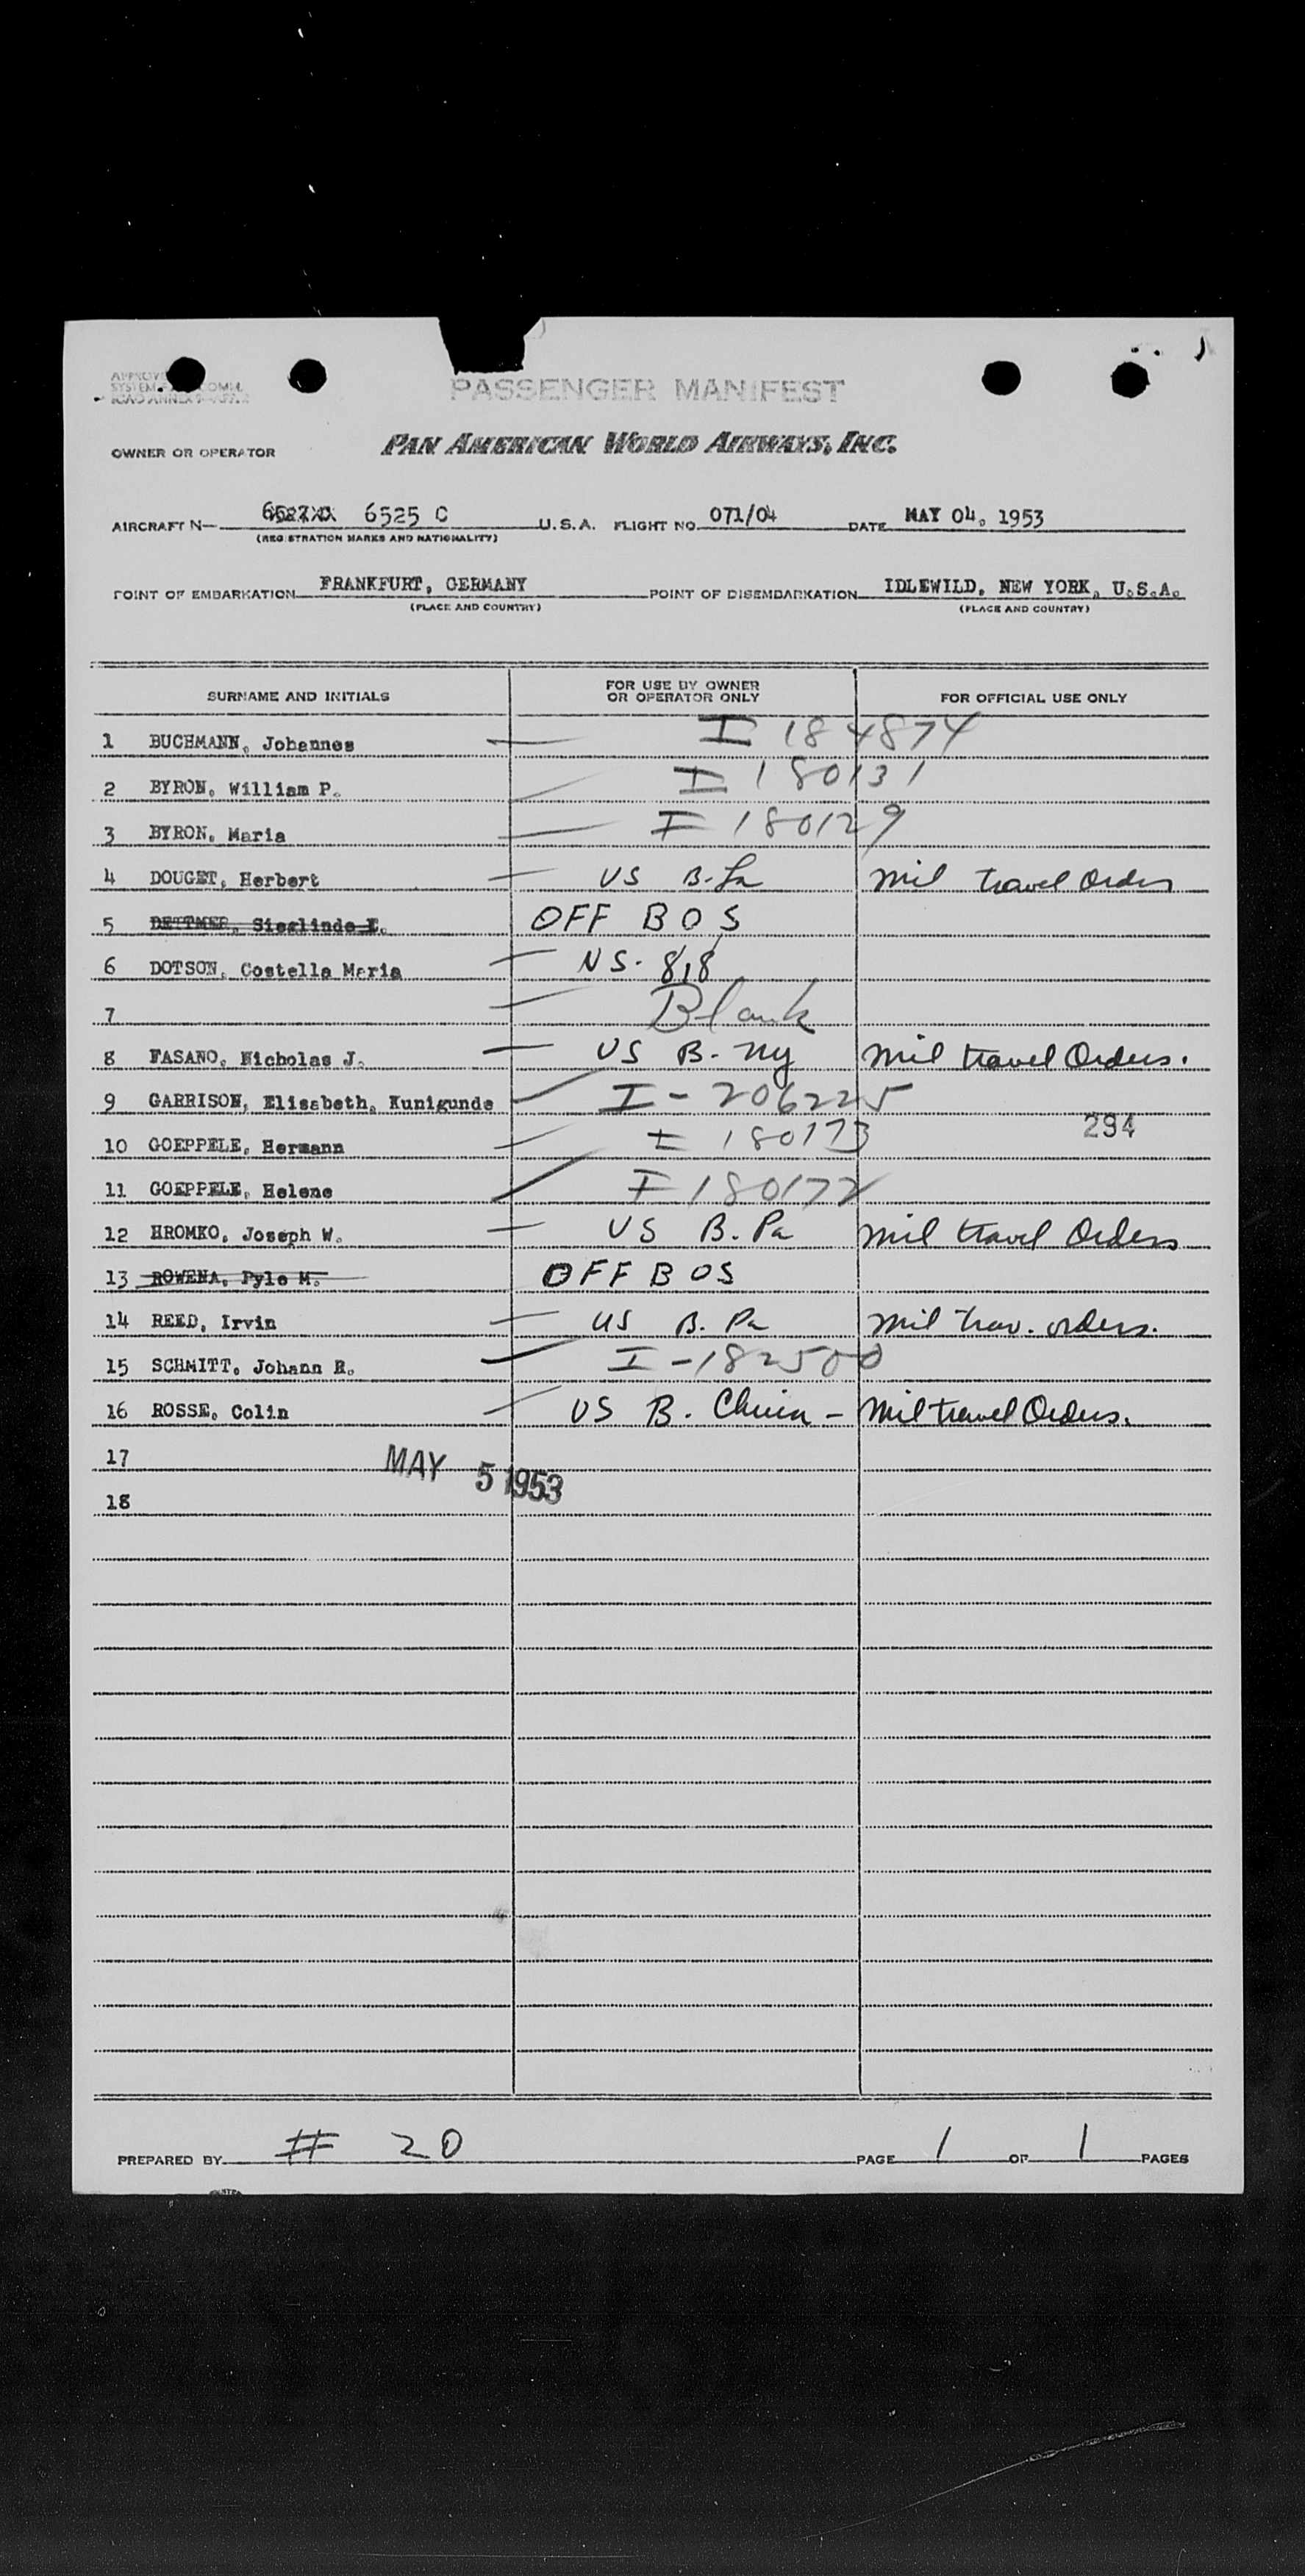 PASSENGER MANIFEST
OWNER OR OPERATOR PAN AMERICAN WORLD AIRWAYS, INC.
AIRCRAFT N— 6525 C U.S.A. FLIGHT NO. 071/04 DATE MAY 04, 1953
(REGISTRATION MARKS AND NATIONALITY)
POINT OF EMBARKATION FRANKFURT, GERMANY POINT OF DISEMBARKATION IDLEWILD, NEW YORK, U.S.A.
(PLACE AND COUNTRY) (PLACE AND COUNTRY)
SURNAME AND INITIALS FOR USE BY OWNER OR OPERATOR ONLY FOR OFFICIAL USE ONLY
1 BUCHMANN, Johannes — I 184874
2 BYRON, William P. I 180131
3 BYRON, Maria — I 180129
4 DOUGET, Herbert — US B. La mil travel Orders
5 DETTMER, Sieglinde E. OFF BOS
6 DOTSON, Costella Maria — NS. 818
7 — Blank
8 FASANO, Nicholas J. — US B. ny mil travel Orders.
9 GARRISON, Elisabeth, Kunigunde I - 206225
294
10 GOEPPELE, Hermann I 180173
11 GOEPPELE, Helene I 180172
12 HROMKO, Joseph W. — US B. Pa mil travel Orders
13 ROWENA, Pyle M. OFF BOS
14 REED, Irvin — US B. Pa mil trav. orders.
15 SCHMITT, Johann R. I - 182500
16 ROSSE, Colin US B. China - mil travel Orders.
17
MAY 5 1953
18
PREPARED BY # 20 PAGE 1 OF 1 PAGES